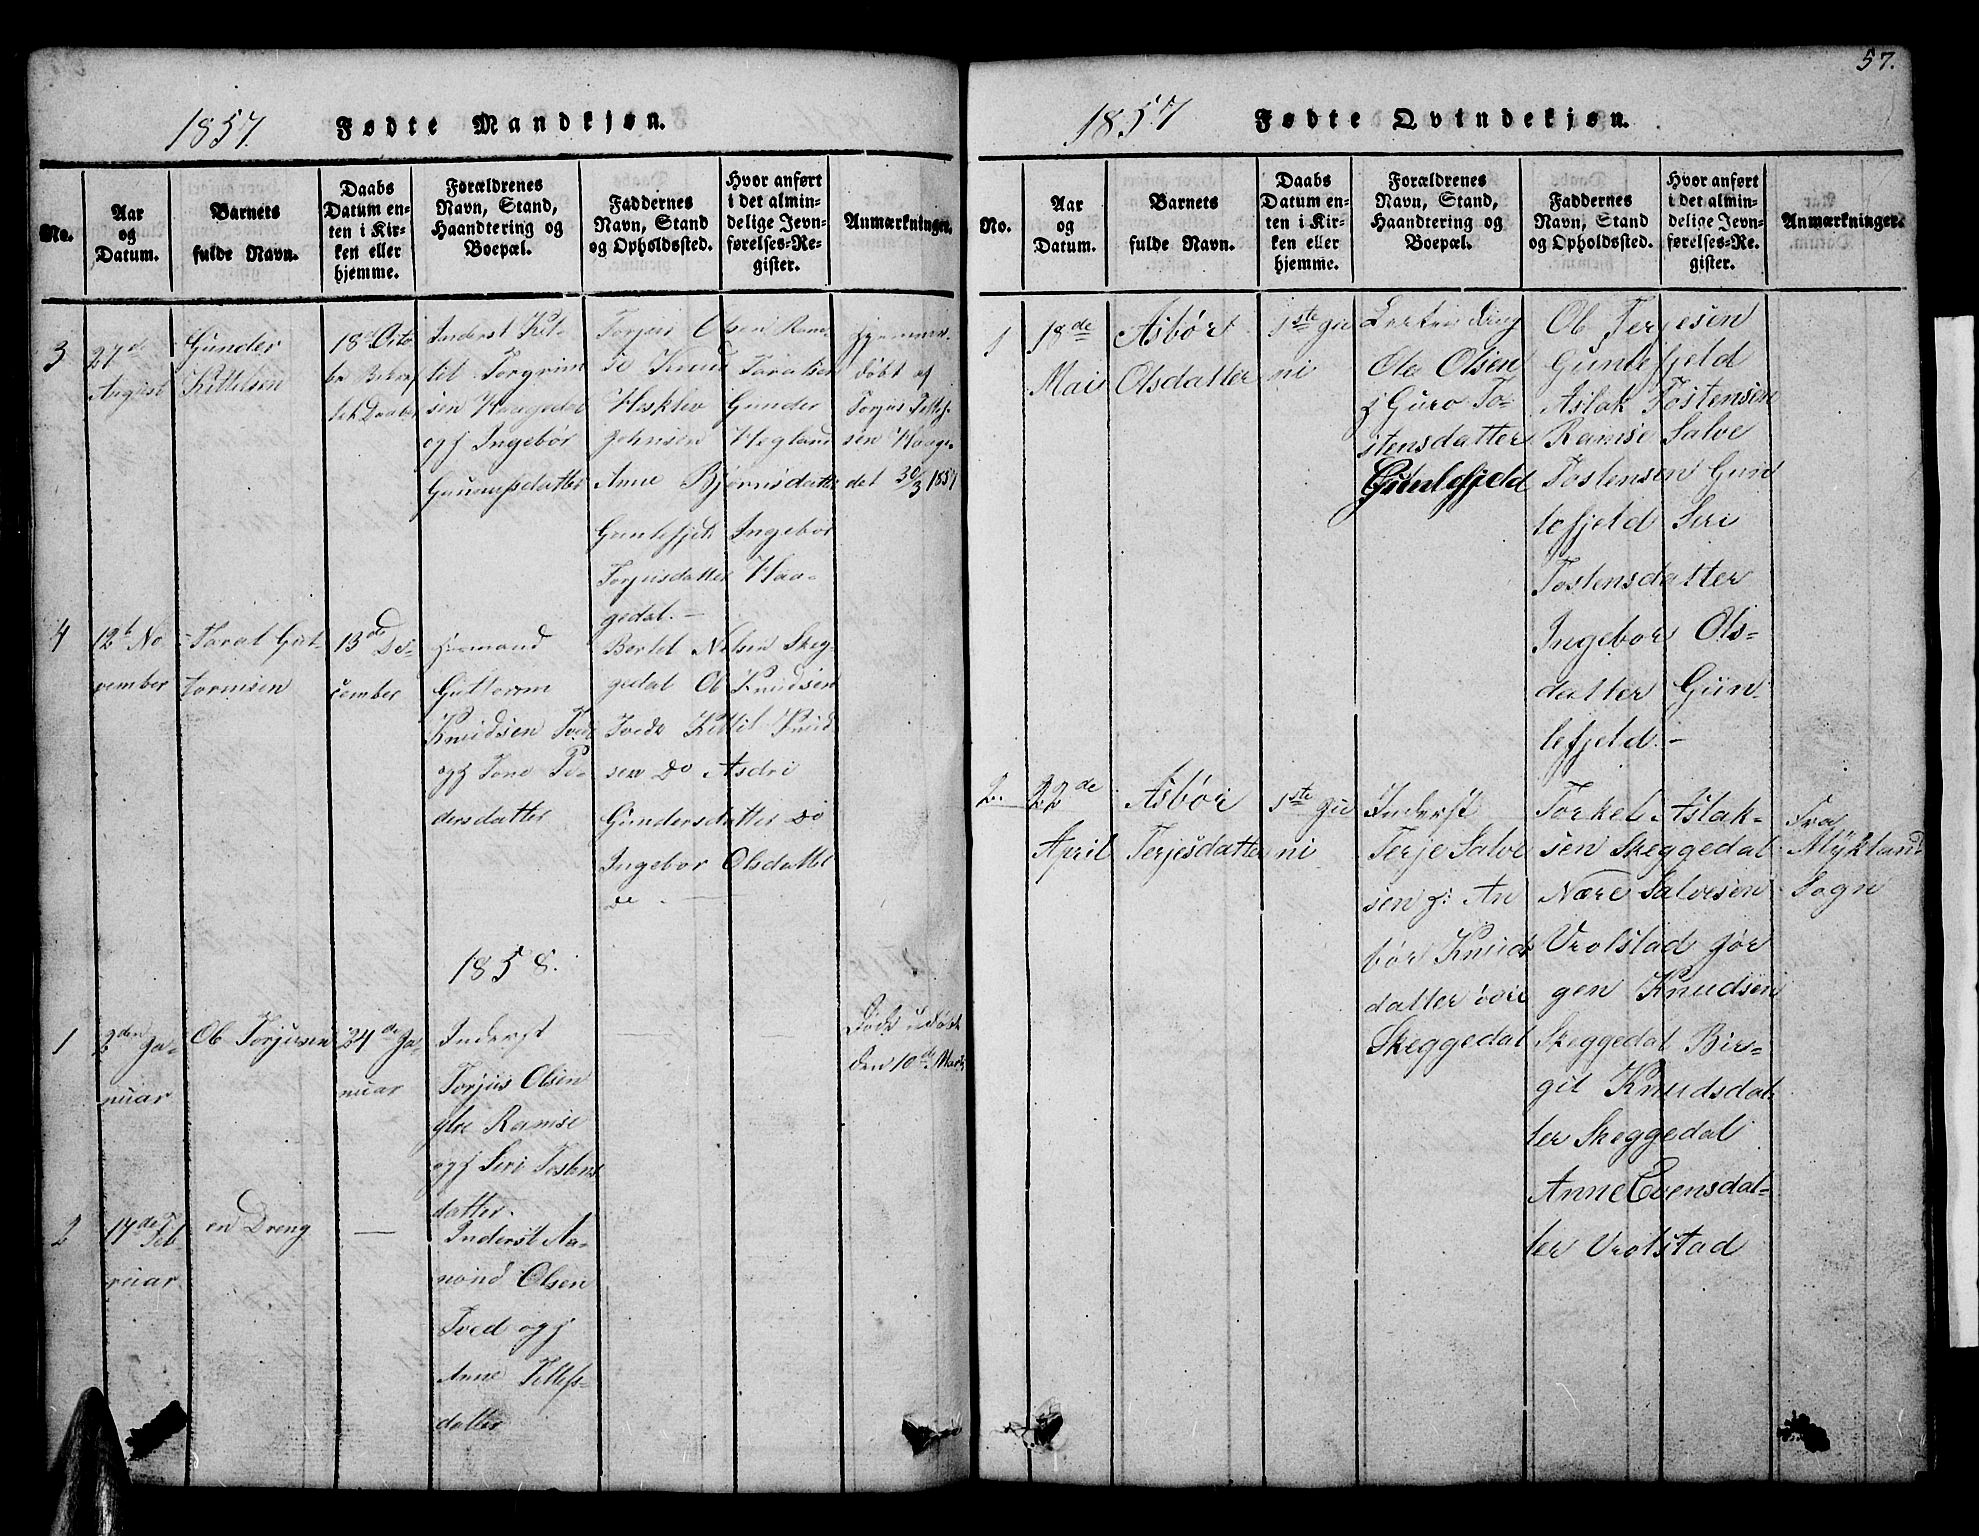 57.
1857. Fødte Mandkjøn.
No.
Aar
og
Datum.
Barnets
fulde Navn.
Daabs
Datum en-
ten i Kir-
ken eller
hjemme.
Forældrenes
Navn, Stand,
Haandtering og
Boepæl.
Faddernes
Navn, Stand
og Opholdssted.
Hvor anført
i det almin-
delige Jevn-
førelses-Re-
gister.
Anmærkninger.
3
27de
August
Gunder
Kittelsen
18de Octo
Inderst Kit-
tel Torgrim
sen Haagedal
og Ingebør
Gunnufsdatter
Torjus Olsen Ram
se Knud Taraldsen
Hesklev Gunder
Johnsen Hegland
Anne Bjørnsdatter
Gunlefjeld Ingebor
Torjusdatter Haa-
gedal. —
Hjemme-
døbt af
Torjus Tellef-
sen Haage-
dal 30/3 1857
4
12te No
vember
Taral Gut-
tormsen
13de De-
cember
Guttorm
Knudsen Tved
og Tone Pe-
dersdatter
Bertel Nilsen Skeg-
gedal O Knudsen
Tvede Kittil Knud
sen Do Asdri
Gundersdatter Do
Ingebor Olsdatter
Do. —
1858.
1
2den Ja-
nuar
Ole Torjusen
24de Ja-
nuar
Inderst
Torjus Olsen
Ramse
og Siri Tostens
datter.
Døde udøbt
den 10de Marts
2
17de Feb-
ruar
en Dreng
—
Inderst Aa-
mond Olsen
Tved og
Anne Tellefs-
datter
1857 Fødte Qvindekjøn.
No.
Aar
og
Datum.
Barnets
fulde Navn.
Daabs
Datum en-
ten i Kir-
ken eller
hjemme.
Forældrenes
Navn, Stand,
Haandtering og
Boepæl.
Faddernes
Navn, Stand
og Opholdssted.
Hvor anført
i det almin-
delige Jevn-
førelses-Re-
gister.
Anmærkninger.
1
18de
Mai
Asbør
Olsdatter
1ste Ju
ni
Ole Olsen
Guro To-
stensdatter
Gunlefjeld
Ole Terjesen
Gunlefjeld
Aslak Tostensen
Ramse Salve
Tostensen Gun
lefjeld Siri
Tostensdatter
Ingebor Ols-
datter Gun-
lefjeld. —
2.
22de
April
Asbør
Terjesdatter
1ste Ju
ni
Inderst
Terje Salve
sen & An
bør Knuds
datter øvre
Skeggedal
Torkel Aslak-
sen Skeggedal
Nære Salvesen
Vrolstad Jør
gen Knudsen
Skeggedal Bir-
git Knudsdat-
ter Skeggedal
Anne Evensdat-
ter Vrolstad
Fra
Mykland
Sogn